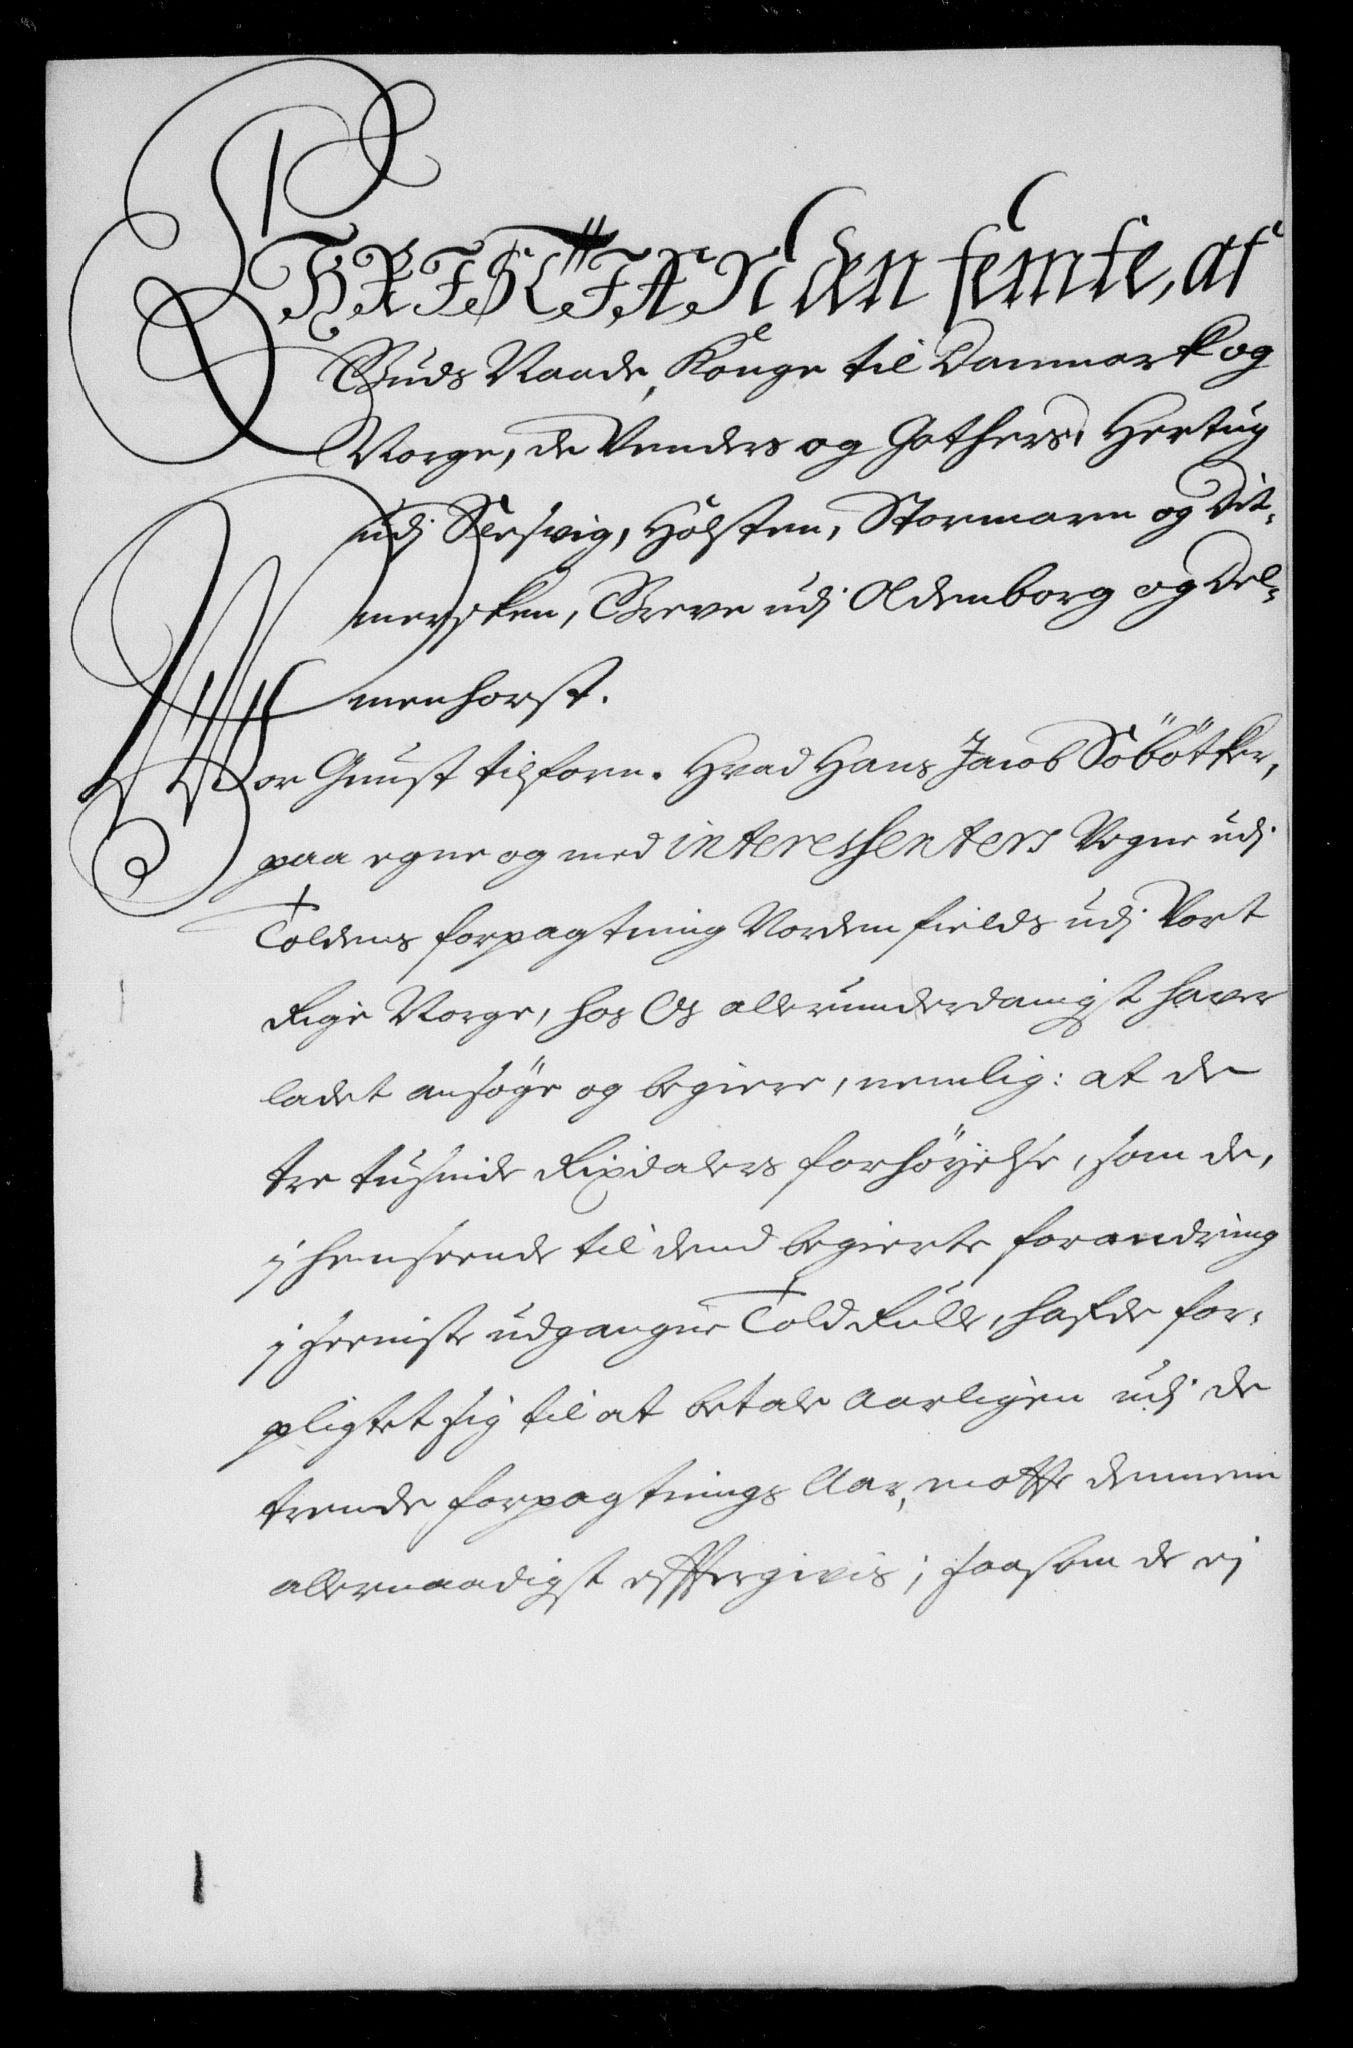 CHRISTIAN den femte, af
Guds Naade, Konge til Danmark og
Norge, de Venders og Gothers, Hertug
udj Slesvig, Holsten, Stormarn og Dit-
mersken, Greve udj Oldenborg og Del-
menhorst.
Vor Gunst tilforn. Hvad Hans Jacob Söbötker,
paa egne og med interessenters Vegne udj
Toldens forpagtning Nordenfields udj Vort
Rige Norge, hos Os allerunderdanigst haver
ladet ansöge og begiere, nemlig: at de
tre tusinde Rixdalers forhöyelse, som de,
j henseende til dend begierte forandring
j seeniste udgangne Told Rulle, hafde for-
pligtet sig til at betale Aarligen udj de
trende forpagtnings Aar, motte dennem
allernaadigst efftergivis; saasom de ej